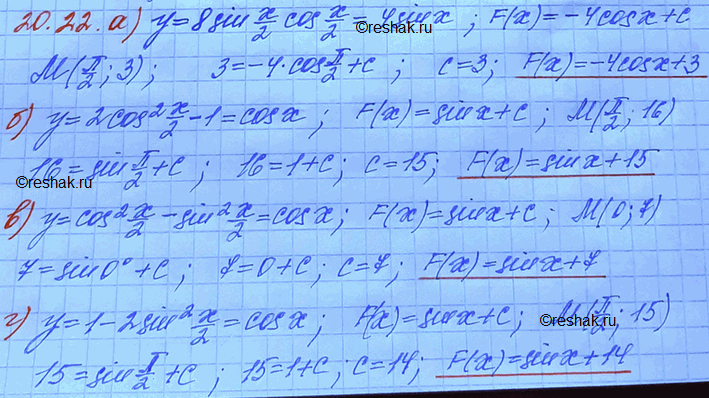 20.22. а) y=8sin x/2 cos x/2 = 4sinx ; F(x)=-4cosx+c
M(π/2; 3); 3=-4·cos π/2+c ; c=3; F(x)=-4cosx+3
©reshak.ru
б) y=2cos² x/2-1=cosx ; F(x)=sinx+c ; M(π/2; 16)
16=sin π/2+c ; 16=1+c ; c=15; F(x)=sinx+15
©reshak.ru
в) y=cos² x/2-sin² x/2=cosx; F(x)=sinx+c; M(0; 7)
7=sin0°+c ; 7=0+c ; c=7; F(x)=sinx+7
г) y=1-2sin² x/2=cosx; F(x)=sinx+c; M(π/2; 15)
©reshak.ru
15=sin π/2+c ; 15=1+c; c=14; F(x)=sinx+14